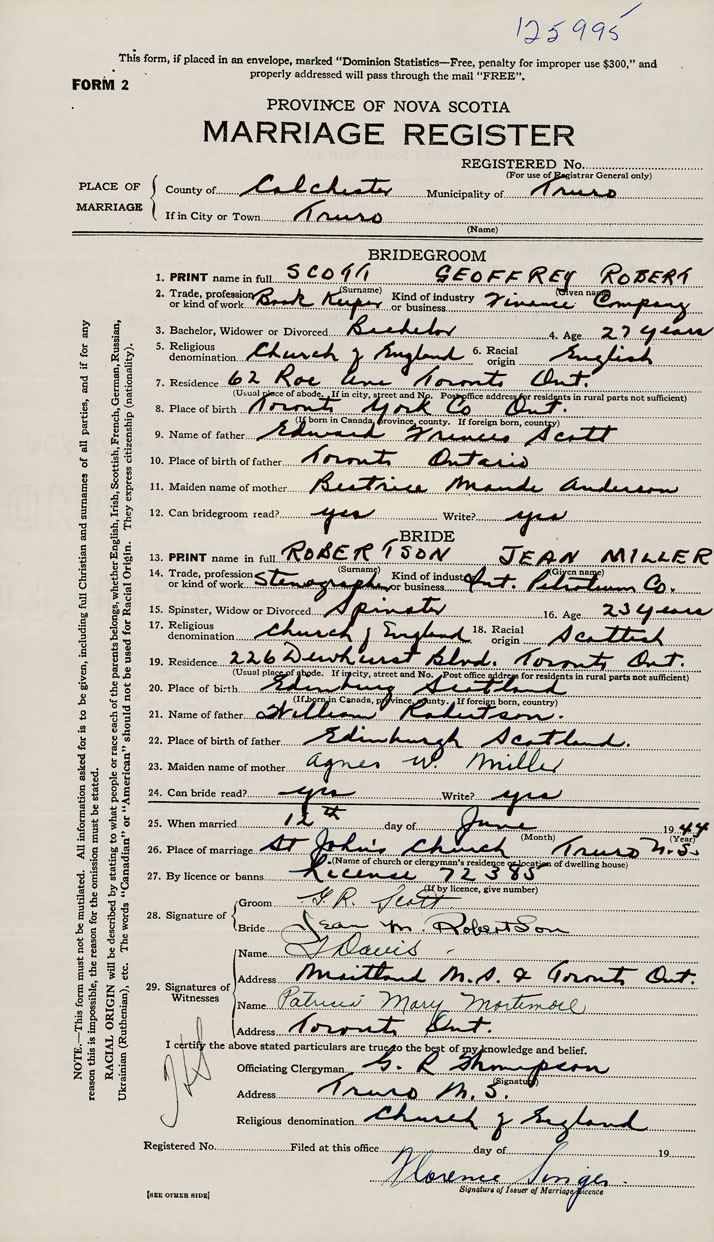 125995
This form, if placed in an envelope, marked "Dominion Statistics—Free, penalty for improper use $300," and
properly addressed will pass through the mail "FREE".
FORM 2
PROVINCE OF NOVA SCOTIA
MARRIAGE REGISTER
REGISTERED No.
(For use of Registrar General only)
PLACE OF MARRIAGE
County of Colchester Municipality of Truro
If in City or Town Truro
(Name)
BRIDEGROOM
1. PRINT name in full SCOTT GEOFFREY ROBERT
(Surname) (Given name)
2. Trade, profession or kind of work Book Keeper Kind of industry or business Finance Company
3. Bachelor, Widower or Divorced Bachelor 4. Age 27 years
5. Religious denomination Church of England 6. Racial origin English
7. Residence 62 Roe Ave Toronto Ont.
(Usual place of abode. If in city, street and No. Post office address for residents in rural parts not sufficient)
8. Place of birth Toronto York Co Ont.
(If born in Canada, province, county. If foreign born, country)
9. Name of father Edward Francis Scott
10. Place of birth of father Toronto Ontario
11. Maiden name of mother Beatrice Maude Anderson
12. Can bridegroom read? yes Write? yes
BRIDE
13. PRINT name in full ROBERTSON JEAN MILLER
(Surname) (Given name)
14. Trade, profession or kind of work Stenographer Kind of industry or business Int. Petroleum Co.
15. Spinster, Widow or Divorced Spinster 16. Age 23 years
17. Religious denomination Church of England 18. Racial origin Scottish
19. Residence 226 Dewhurst Blvd. Toronto Ont.
(Usual place of abode. If in city, street and No. Post office address for residents in rural parts not sufficient)
20. Place of birth Edinburg Scotland
(If born in Canada, province, county. If foreign born, country)
21. Name of father William Robertson.
22. Place of birth of father Edinburgh Scotland.
23. Maiden name of mother Agnes W. Miller
24. Can bride read? yes Write? yes
25. When married 12th day of June 1944
(Month) (Year)
26. Place of marriage St John's Church Truro N.S.
(Name of church or clergyman's residence or location of dwelling house)
27. By licence or banns License 72385
(If by licence, give number)
28. Signature of
Groom G.R. Scott
Bride Jean M. Robertson
29. Signatures of Witnesses
Name Davis
Address Maitland N.S. & Toronto Ont.
Name Patricia Mary Mortimore
Address Toronto Ont.
I certify the above stated particulars are true to the best of my knowledge and belief.
Officiating Clergyman G. R Thompson
(Signature)
Address Truro N.S.
Religious denomination Church of England
Registered No. Filed at this office day of 19
Florence Singer
Signature of Issuer of Marriage Licence
[SEE OTHER SIDE]
NOTE.—This form must not be mutilated. All information asked for is to be given, including full Christian and surnames of all parties, and if for any
reason this is impossible, the reason for the omission must be stated.
RACIAL ORIGIN will be described by stating to what people or race each of the parents belongs, whether English, Irish, Scottish, French, German, Russian,
Ukrainian (Ruthenian), etc. The words "Canadian" or "American" should not be used for Racial Origin. They express citizenship (nationality).